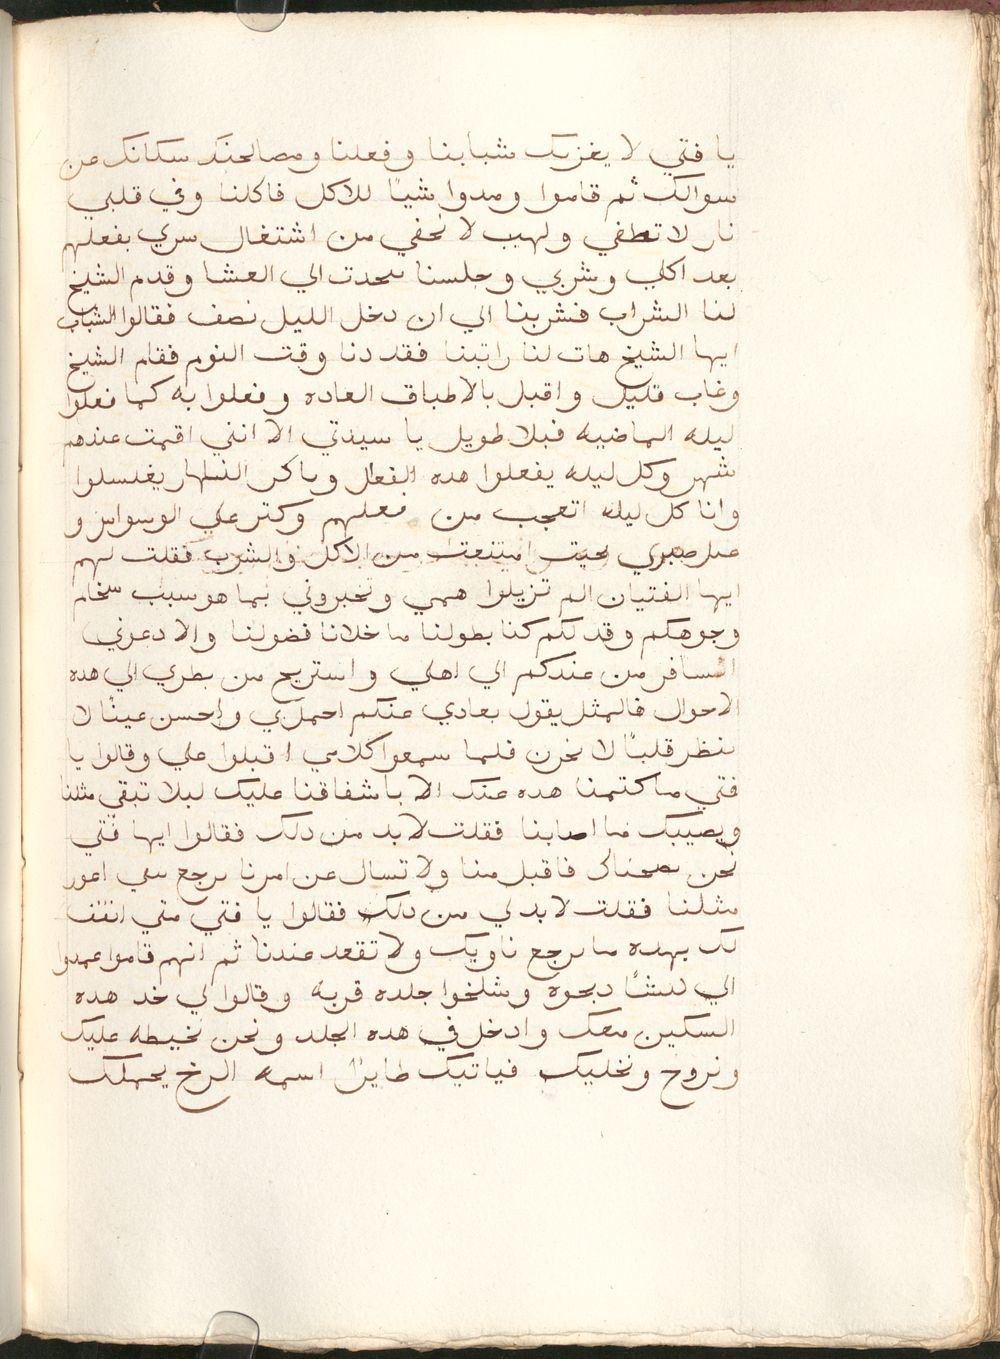 يا فتي لا يغزيك شبابنا وفعلنا ومصالحتك سكاتك عن
سوالك ثم قاموا ومدوا شيًا للاكل فاكلنا وفي قلبي
نار لا تطفي ولهيب لا تخفي من اشتغال سري بفعلهم
بعد اكلي وشربي وجلسنا نتحدت الي العشا وقدم الشيخ
لنا الشراب فشربنا الي ان دخل الليل نصف فقالوا الشباب
ايها الشيخ هات لنا راتبنا فقد دنا وقت النوم فقام الشيخ
وغاب قليل واقبل بالاطباق العاده وفعلوا به كما فعلوا
ليله الماضيه فبلا طويل يا سيدتي الا انني اقمت عندهم
شهر وكل ليله يفعلوا هده الفعل وباكر النهار يغسلوا
وانا كل ليله اتعجب من فعلهم وكتر علي الوسواس و
صبري بحيت امتنعت من الاكل والشرب فقلت لهم
ايها الفتيان الم تزيلوا همي وتخبروني بما هو سبب سخام
وجوهكم وقد لكم كنا بطولنا ما خلانا فضولنا والا دعوني
اسافر من عندكم الي اهلي واستريح من نظري الي هده
الاحوال فالمثل يقول بعادي عنكم احمل بي واحسن عينًا لا
تنظر قلبًا لا يحزن فلما سمعوا كلامي اقبلوا علي وقالوا يا
فتي ما كتمنا هده عنك الا باشفاقنا عليك ليلا تبقي مثلنا
ويصيبك ما اصابنا فقلت لابد من دلك فقالوا ايها فتي
نحن نصحناك فاقبل منا ولا تسال عن امرنا ترجع تبقي اعور
مثلنا فقلت لابد لي من دلك فقالوا يا فتي متي اتفق
لك بهده ما نرجع ناويك ولا تقعد عندنا ثم انهم قاموا عمدوا
الي كبشًا دبحوه وشلخوا جلده قربه وقالوا لي خد هده
السكين معك وادخل في هده الجلد ونحن نخيطه عليك
ونروح ونخليك فياتيك طايرًا اسمه الرخ يحملك